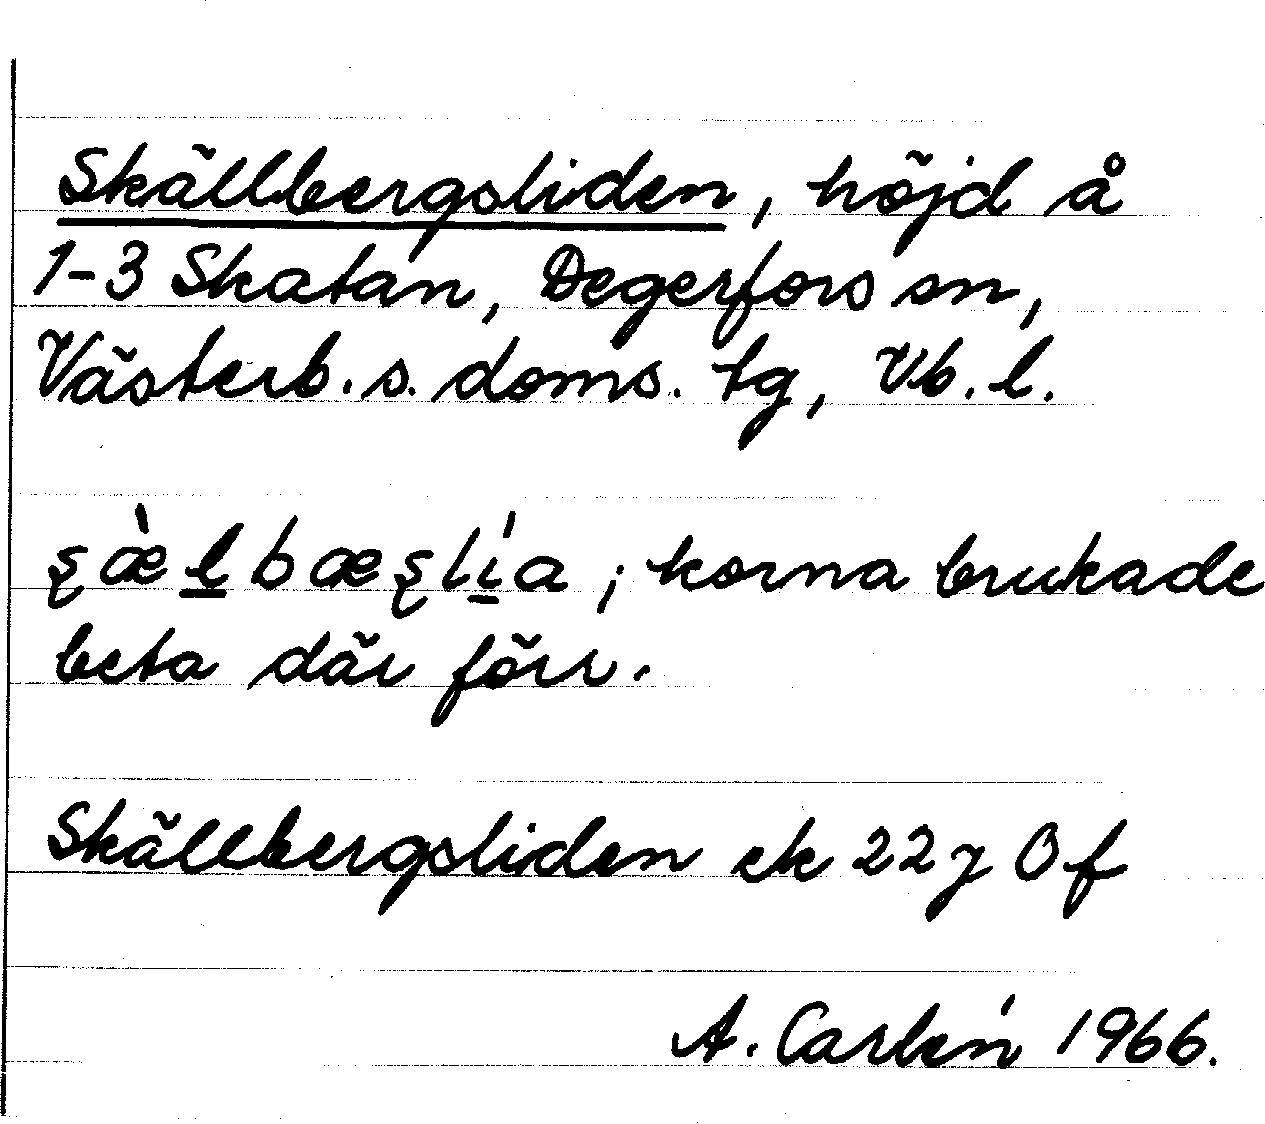 Skällbergsliden, höjd å
1-3 Skatan, Degerfors sn,
Västerb. s. doms. tg, Vb. l.
ʂæ̀l̲bæʂlí̲a ; korna brukade
beta där förr.
Skällbergsliden ek 22 j 0 f
A. Carlén 1966.